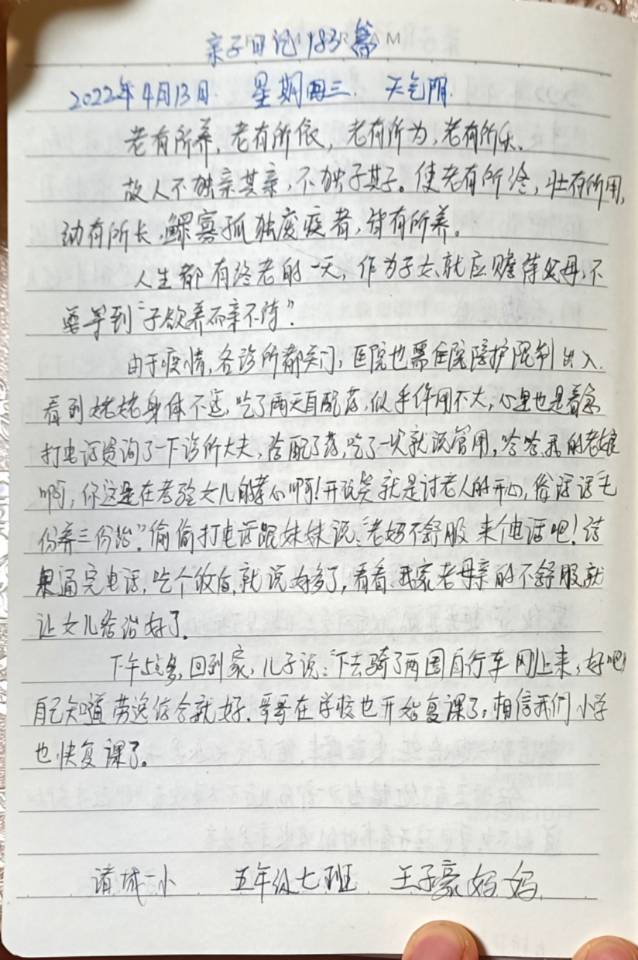 亲子日记183篇
2022年4月13日 星期三 天气阴
老有所养,老有所依,老有所为,老有所乐。
故人不独亲其亲,不独子其子。使老有所终,壮有所用,
幼有所长,鳏寡孤独废疾者,皆有所养。
人生都有终老的一天,作为子女,就应赡待父母,不
要等到“子欲养而亲不待”。
由于疫情,各诊所都关门,医院也需医院陪护限制出入.
看到姥姥身体不适,吃了两天自配药,似乎作用不大,心里也是着急
打电话咨询了一下诊所大夫,给配了药,吃了一次就说管用,哈哈我的老娘
啊,你这是在考验女儿的孝心啊!开玩笑就是讨老人的开心,俗话说“七
份养三份治”。偷偷打电话跟妹妹说:“老妈不舒服 来个电话吧!结
果通完电话,吃个饭后,就说好多了,看看我家老母亲的不舒服就
让女儿给治好了。
下午5点多,回到家,儿子说:“下去骑了两圈自行车刚上来,好吧!
自己知道劳逸结合就好.哥哥在学校也开始复课了,相信我们小学
也快复课了。
诸城一小 五年级七班 王子豪妈妈